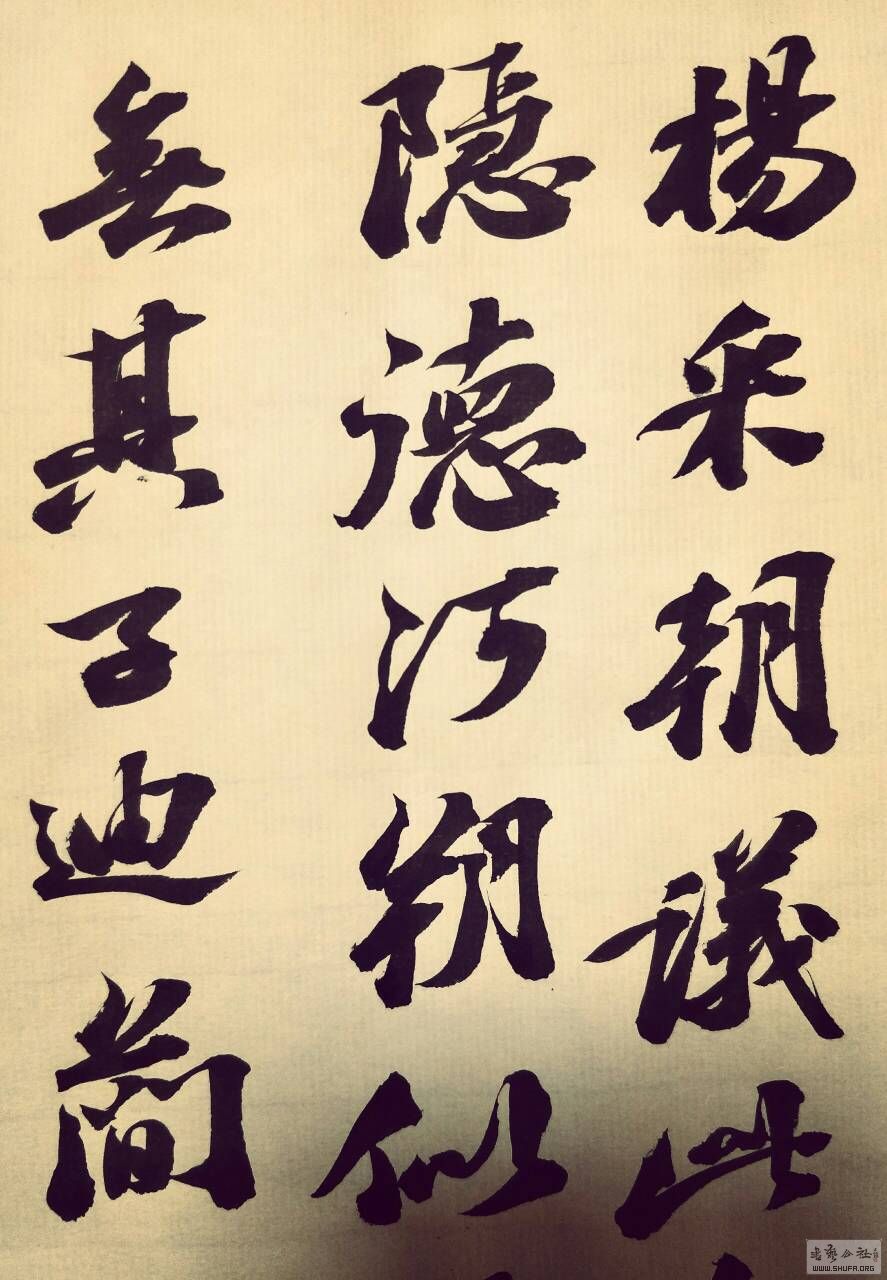 楊采朝議此
隱德河朔似
無其子迪簡
書藝公社
WWW.SHUFA.ORG